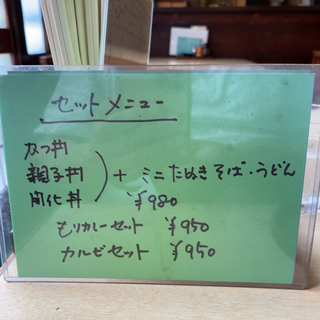 セットメニュー
かつ丼
親子丼 ) + ミニたぬきそば・うどん
開化丼 ¥980
もりカレーセット ¥950
カルビセット ¥950